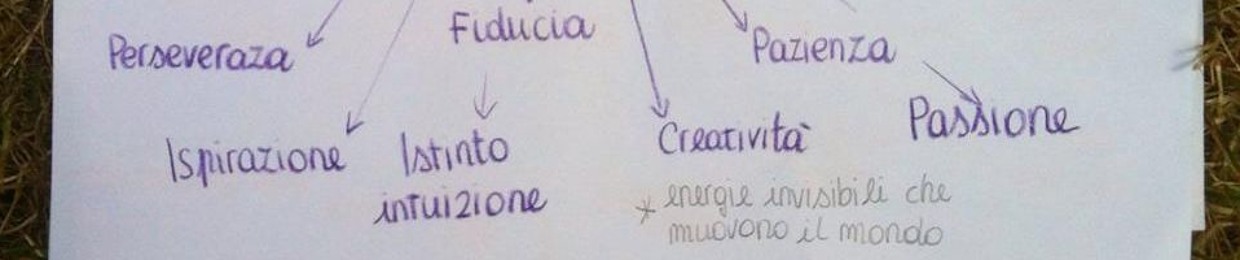 Fiducia
Perseveraza
Pazienza
Passione
Ispirazione
Istinto
intuizione
Creatività
* energie invisibili che
muovono il mondo